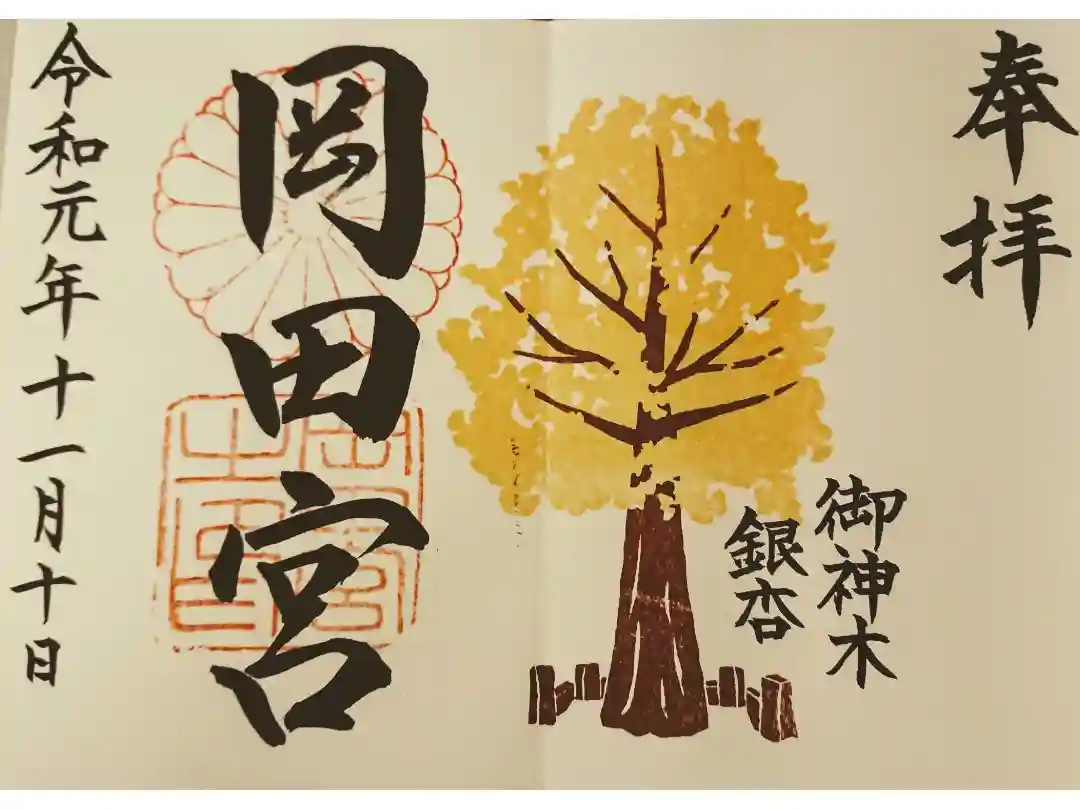 奉拝
御神木
銀杏
岡田宮
令和元年十一月十日